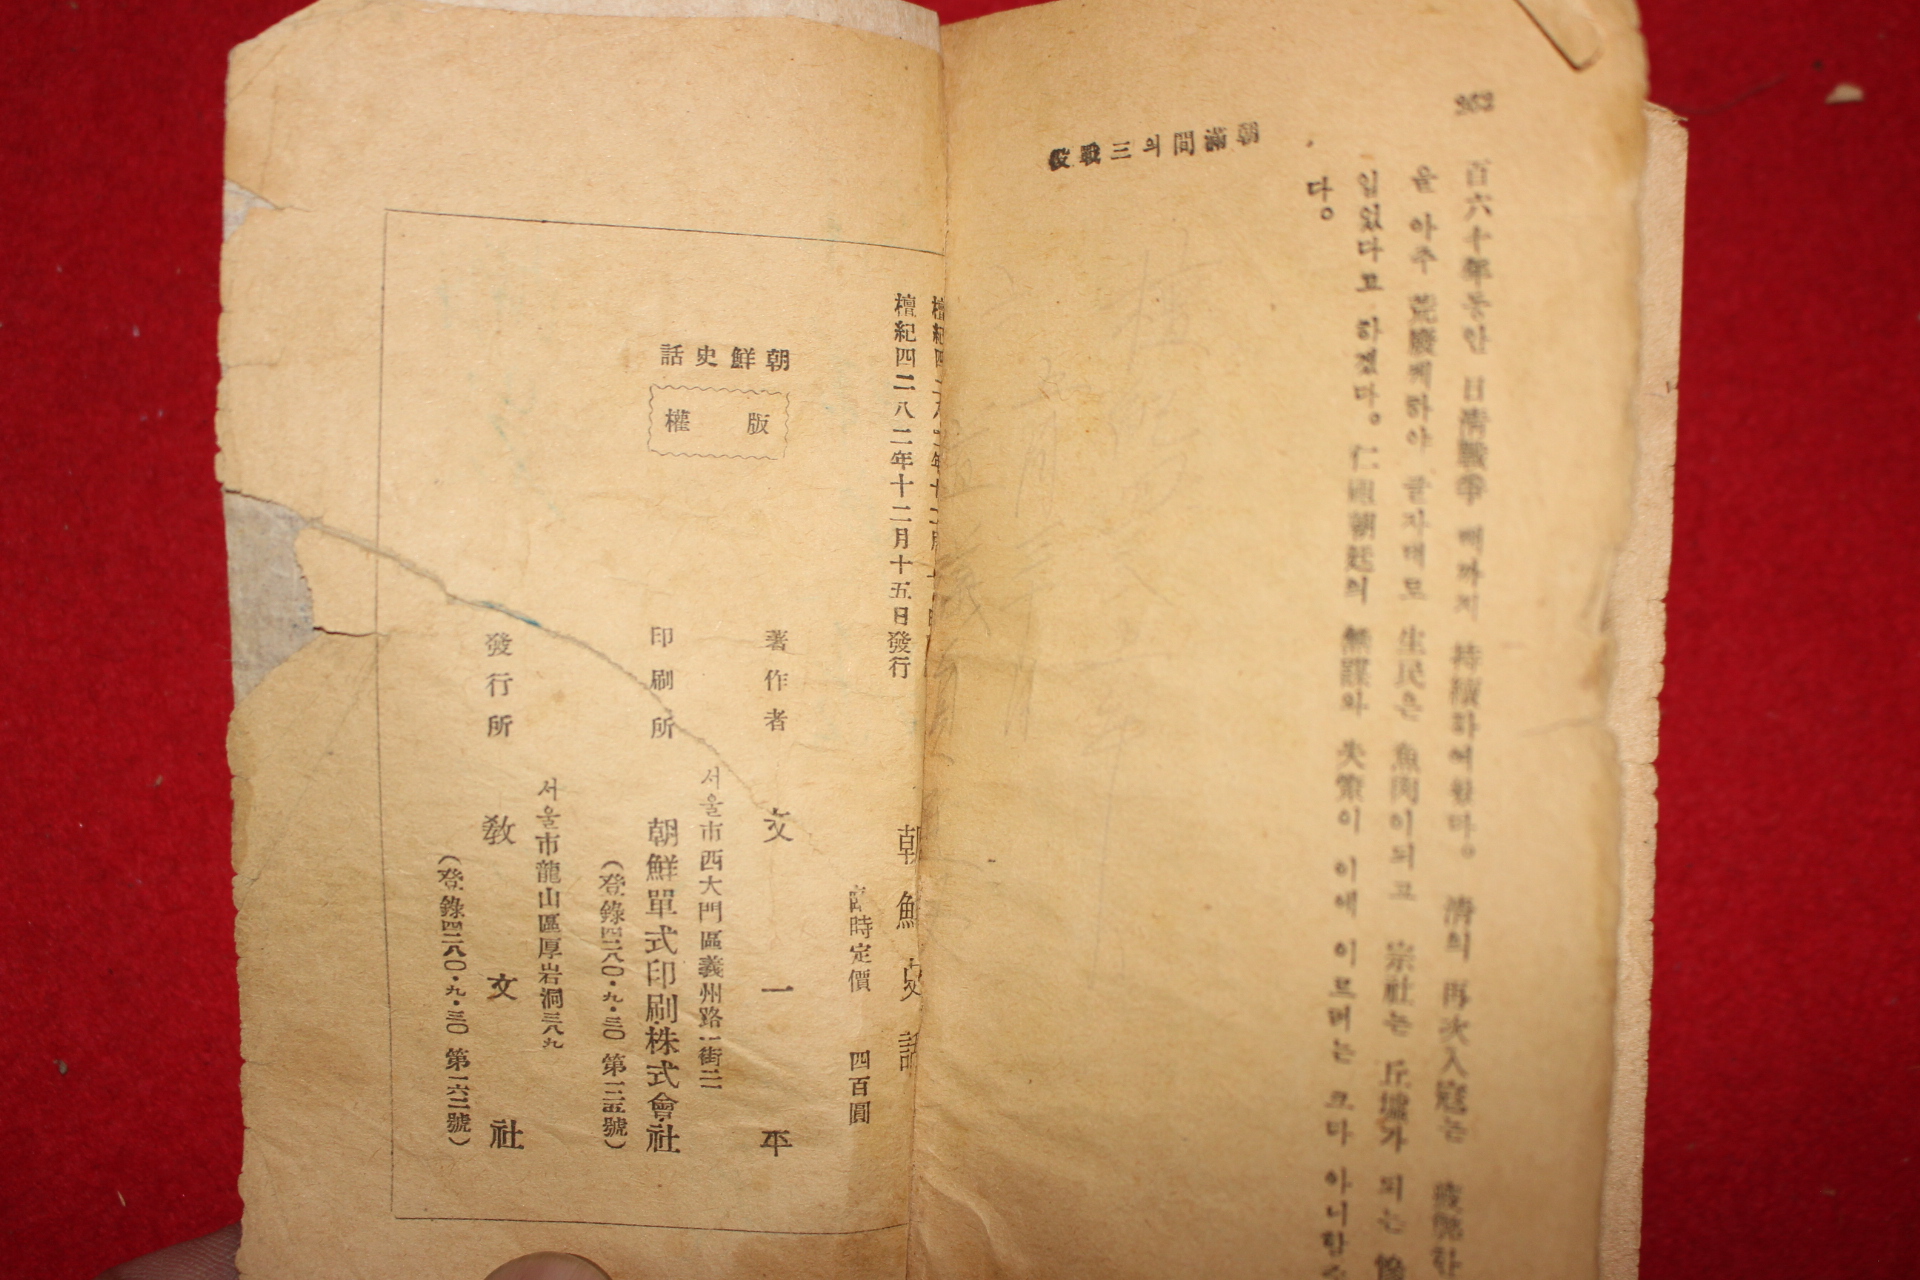 362
朝滿間의三戰役
百六十年동안 日清戰爭 때까지 持續하여왔다。 清의 再次入寇는 疲弊한
을 아주 荒廢케하야 글자대로 生民은 魚肉이되고 宗社는 丘墟가 되는 慘
입었다고 하겠다。 仁祖朝廷의 無謀와 失策이 이에 이르며는 크다 아니할 수
다。
檀紀四二八二年十二月十五日發行
朝鮮史話
臨時定價 四百圓
朝鮮史話
版權
著作者 文一平
서울市西大門區義州路二街二一
印刷所 朝鮮單式印刷株式會社
(登錄四二八〇・九・三〇 第一三五號)
서울市龍山區厚岩洞三八九
發行所 敎文社
(登錄四二八〇・九・三〇 第一六二號)